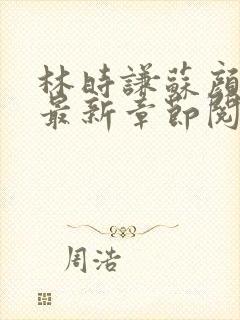 林時謙蘇顔
最新章節閱
周浩